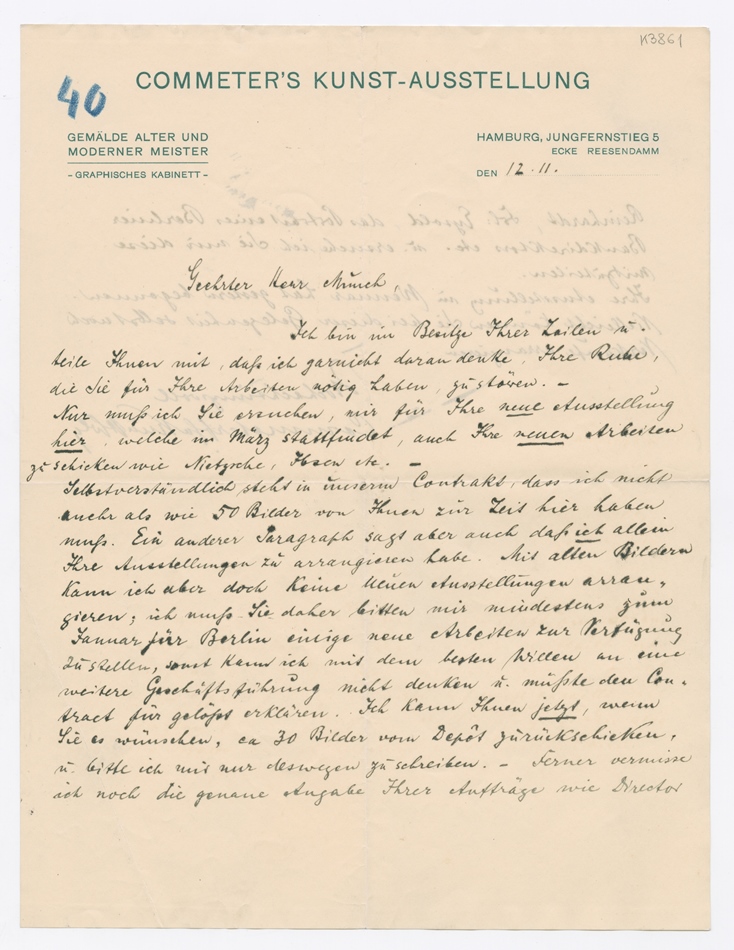 K3861
40
COMMETER'S KUNST-AUSSTELLUNG
GEMÄLDE ALTER UND
MODERNER MEISTER
- GRAPHISCHES KABINETT -
HAMBURG, JUNGFERNSTIEG 5
ECKE REESENDAMM
DEN 12.11.
Geehrter Herr Munch,
Ich bin im Besitze Ihrer Zeilen u.
teile Ihnen mit, daß ich garnicht daran denke, Ihre Ruhe,
die Sie für Ihre Arbeiten nötig haben, zu stören. –
Nur muß ich Sie ersuchen, mir für Ihre neue Ausstellung
hier, welche im März stattfindet, auch Ihre neuen Arbeiten
zu schicken wie Nietzsche, Ibsen etc. –
Selbstverständlich steht in unserm Contrakt, dass ich nicht
mehr als wie 50 Bilder von Ihnen zur Zeit hier haben
muss. Ein anderer Paragraph sagt aber auch daß ich allein
Ihre Ausstellungen zu arrangieren habe. Mit alten Bildern
kann ich aber doch keine neuen Ausstellungen arran-
gieren; ich muß Sie daher bitten mir mindestens zum
Januar für Berlin einige neue Arbeiten zur Verfügung
zu stellen, sonst kann ich mit dem besten Willen an eine
weitere Geschäftsführung nicht denken u. müßte den Con-
tract für gelößt erklären. Ich kann Ihnen jetzt, wenn
Sie es wünschen, ca 30 Bilder vom Depôt zurückschicken,
u. bitte ich mir nur deswegen zu schreiben. – Ferner vermisse
ich noch die genaue Angabe Ihrer Aufträge wie Director